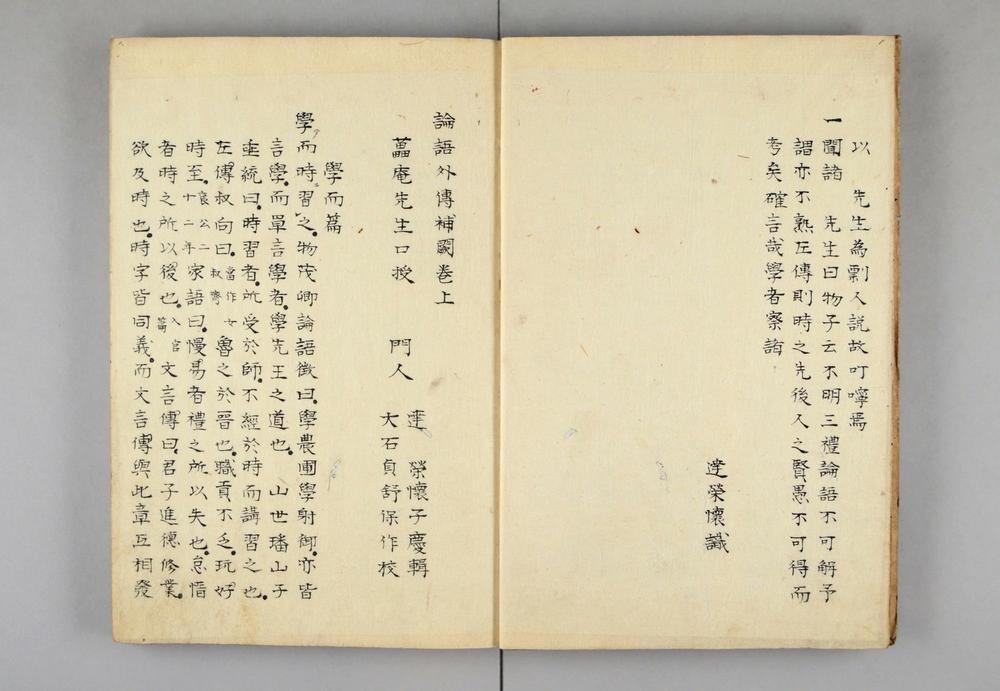 以　先生為剽人説故叮嚀焉
一聞諸　先生曰物子云不明三禮論語不可解予
謂亦不熟左傳則時之先後人之賢愚不可得而
考矣確言哉學者察諸
達榮懷識
論語外傳補闕卷上
藠庵先生口授　門人
達　榮懷子慶輯
大石貞舒保作校
學而篇
學而時習之物茂卿論語徵曰學農圃學射御亦皆
言學而單言學者學先王之道也　山世璠山子
垂統曰時習者所受於師不經於時而講習之也
左傳叔向曰當作女叔齊魯之於晉也職貢不乏玩好
時至襄公二十二年家語曰慢易者禮之所以失也怠惰
者時之所以後也入官篇文言傳曰君子進德修業
欲及時也時字皆同義而文言傳與此章互相發